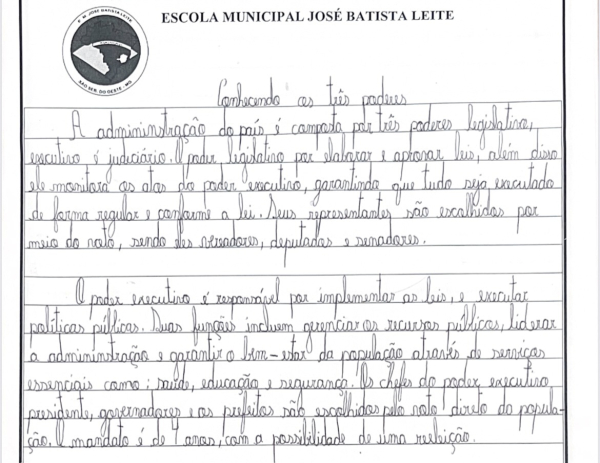 ESCOLA MUNICIPAL JOSÉ BATISTA LEITE
E. M. JOSÉ BATISTA LEITE
SÃO SEB. DO OESTE - MG
Conhecendo os três poderes
A admininstração do país é composta por três poderes legislativo,
executivo é judiciário. O poder legislativo por elaborar e aprovar leis, além disso
ele monitora os atos do poder executivo, garantindo que tudo seja executado
de forma regular e conforme a lei. Seus representantes são escolhidos por
meio do voto, sendo eles vereadores, deputados e senadores.
O poder executivo é responsável por implementar as leis, e executar
políticas públicas. Suas funções incluem gerenciar os recursos públicos, liderar
a admininstração e garantir o bem-estar da população através de serviços
essenciais como: saúde, educação e segurança. Os chefes do poder executivo
presidente, governadores e os prefeitos são escolhidos pelo voto direto da popula-
ção. O mandato é de 4 anos, com a possibilidade de uma reeleição.